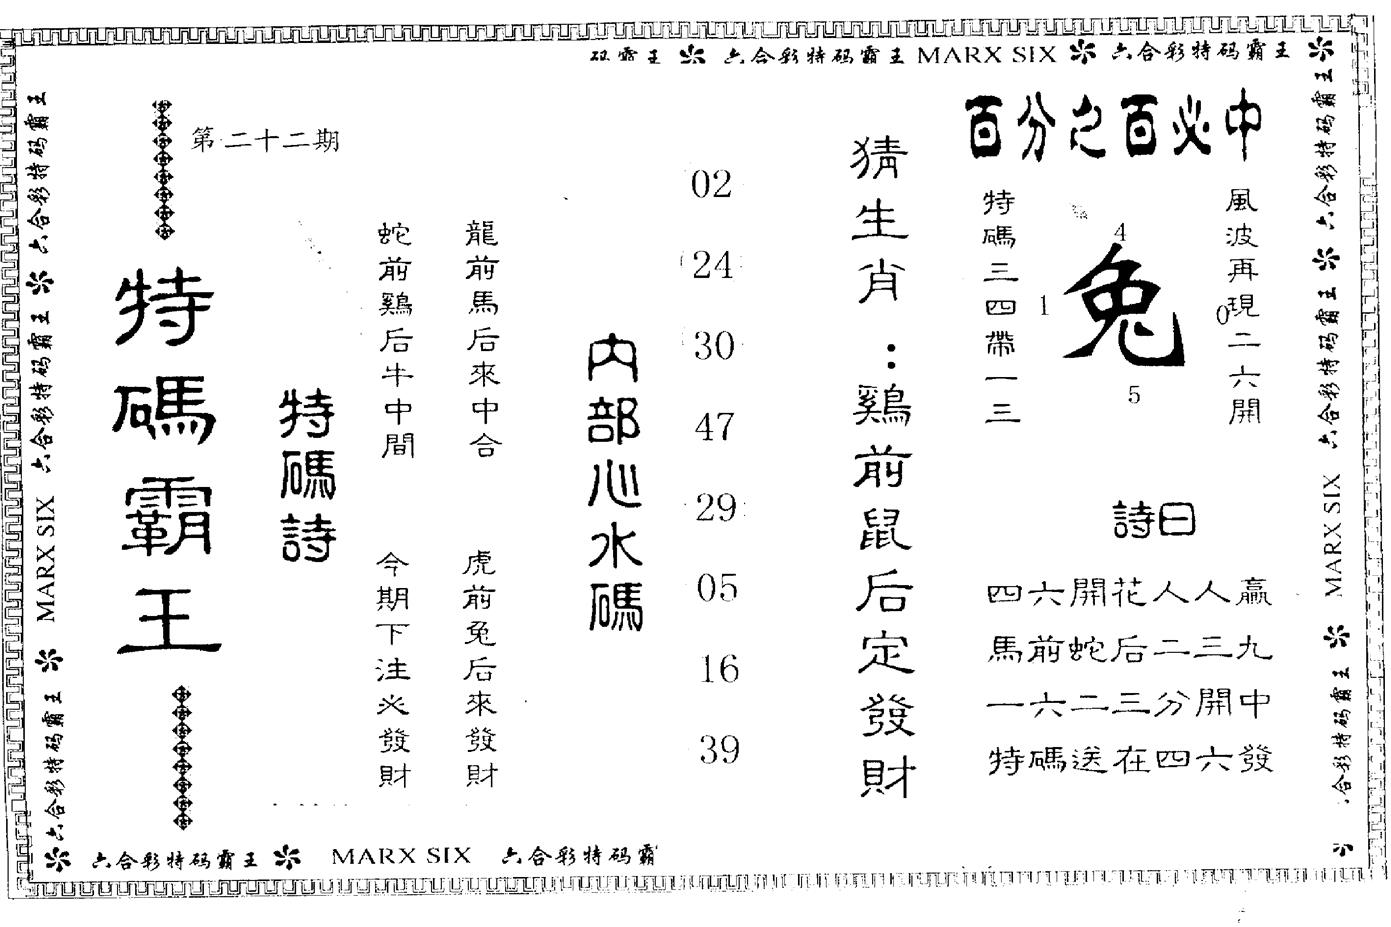 码霸王 六合彩特码霸王 MARX SIX 六合彩特码霸王
六合彩特码霸王 六合彩特码霸王 MARX SIX 六合彩特码霸王
六合彩特码霸王 六合彩特码霸王 MARX SIX 六合彩特码霸王
六合彩特码霸王 MARX SIX 六合彩特码霸
百分之百必中
風波再現二六開
4
1
兔
0
5
特碼三四帶一三
詩曰
四六開花人人贏
馬前蛇后二三九
一六二三分開中
特碼送在四六發
猜生肖：鷄前鼠后定發財
02
24
30
47
29
05
16
39
内部心水碼
龍前馬后來中合
虎前兔后來發財
蛇前鷄后牛中間
今期下注必發財
特碼詩
第二十二期
特碼霸王